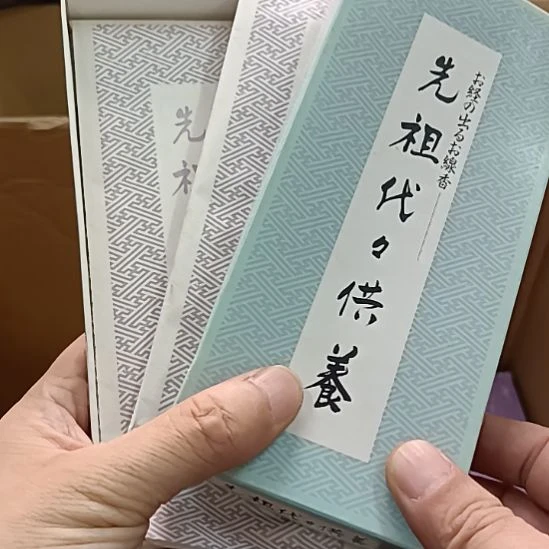 お経の出るお線香
先祖代々供養
先祖代々供養
先祖